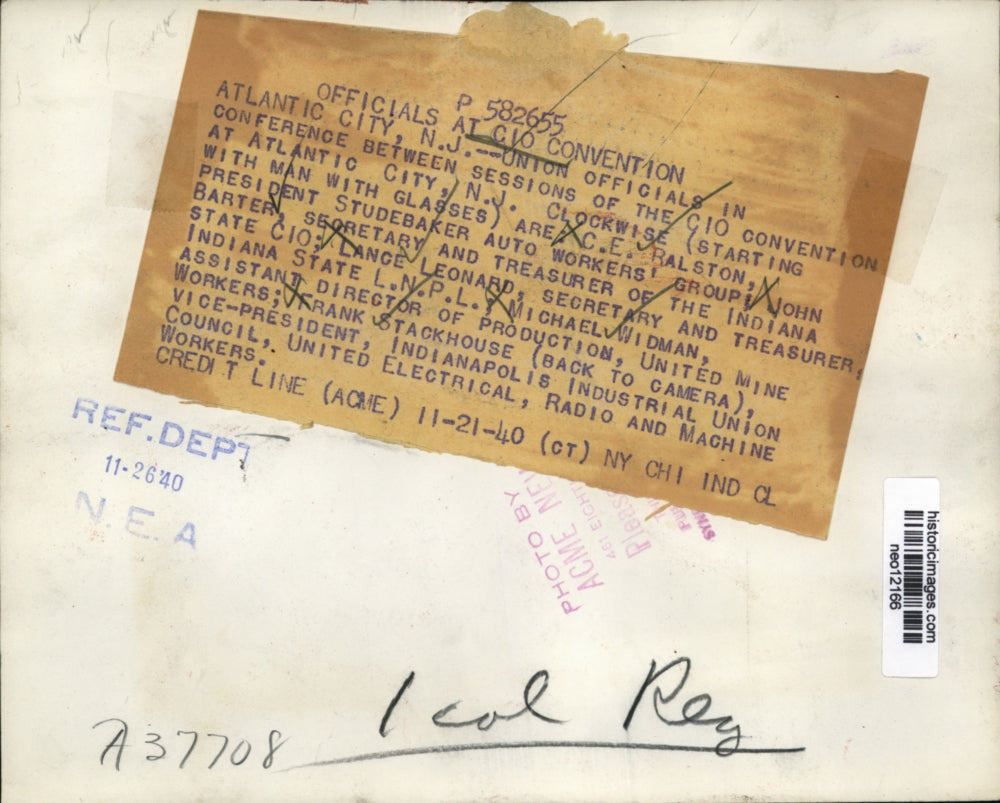 P 582655
OFFICIALS AT CIO CONVENTION
ATLANTIC CITY, N.J.--UNION OFFICIALS IN
CONFERENCE BETWEEN SESSIONS OF THE CIO CONVENTION
AT ATLANTIC CITY, N.J. CLOCKWISE (STARTING
WITH MAN WITH GLASSES) ARE: C.E. RALSTON,
PRESIDENT STUDEBAKER AUTO WORKERS' GROUP; JOHN
BARTER, SECRETARY AND TREASURER OF THE INDIANA
STATE CIO; LANCE LEONARD, SECRETARY AND TREASURER,
INDIANA STATE L.N.P.L.; MICHAEL WIDMAN,
ASSISTANT DIRECTOR OF PRODUCTION, UNITED MINE
WORKERS; FRANK STACKHOUSE (BACK TO CAMERA),
VICE-PRESIDENT, INDIANAPOLIS INDUSTRIAL UNION
COUNCIL, UNITED ELECTRICAL, RADIO AND MACHINE
WORKERS.
CREDIT LINE (ACME) 11-21-40 (CT) NY CHI IND CL
REF. DEPT
11-26 40
N. E. A
PHOTO BY
ACME NEW
461 EIGHT
Please
SYN
historicimages.com
neo12166
1 col Reg
A37708